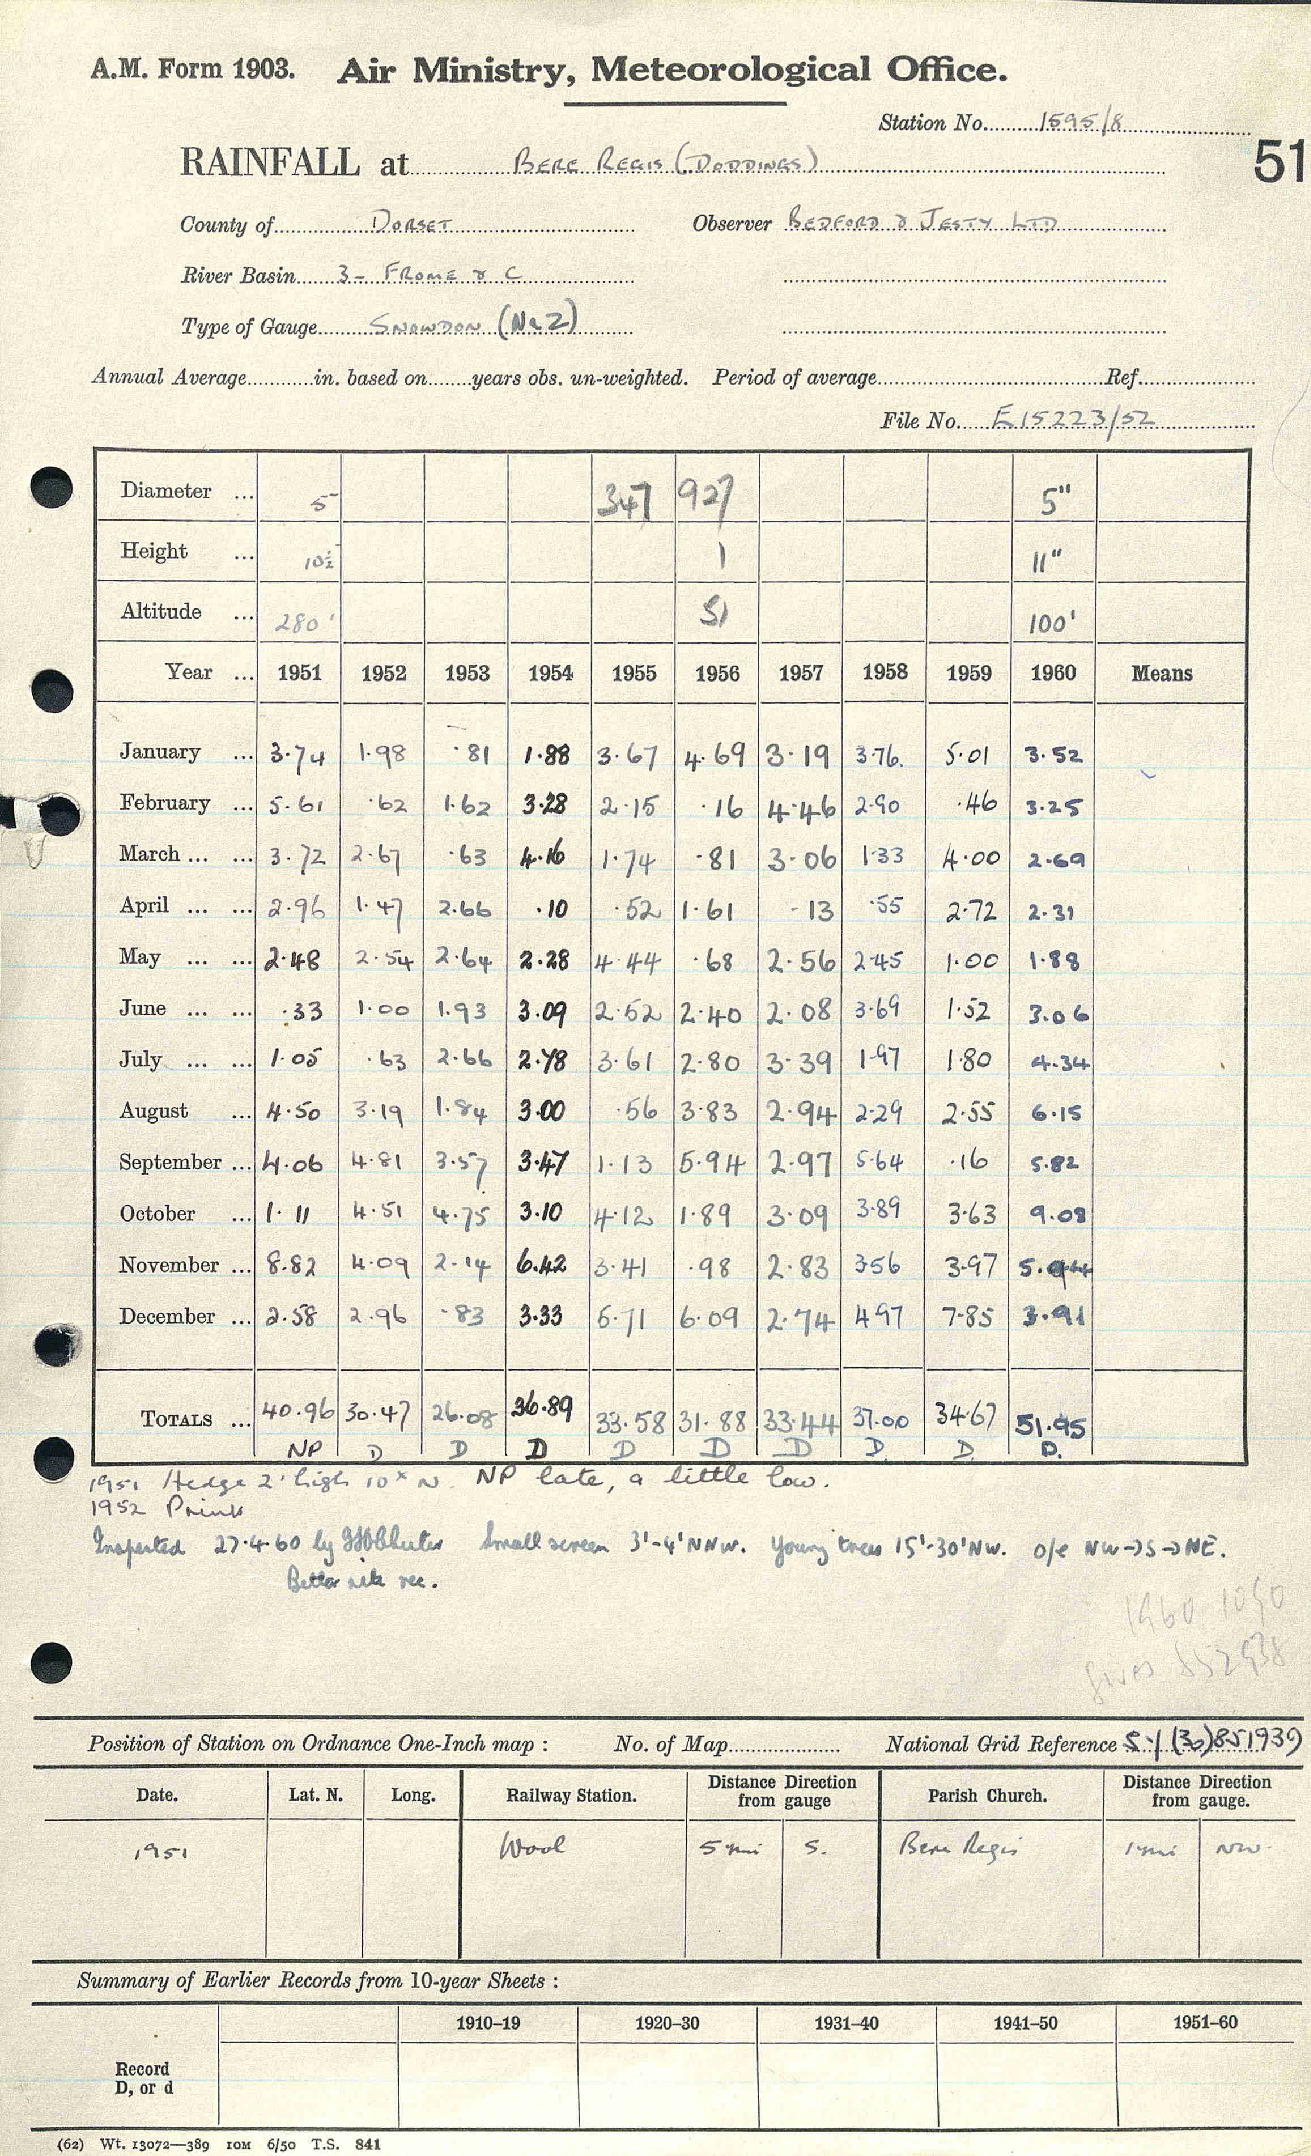 A.M. Form 1903. Air Ministry, Meteorological Office.
Station No. 1595/8
RAINFALL at BERE REGIS (DODDINGS) 51
County of DORSET Observer BEDFORD & JESTY LTD
River Basin 3- FROME & C
Type of Gauge SNOWDON (Mk 2)
Annual Average in. based on years obs. un-weighted. Period of average Ref.
File No. E15223/52
Diameter ... 5" 347 927 5"
Height ... 10½ 1 11"
Altitude ... 280' 51 100'
Year ... 1951 1952 1953 1954 1955 1956 1957 1958 1959 1960 Means
January ... 3.74 1.98 .81 1.88 3.67 4.69 3.19 3.76. 5.01 3.52
February ... 5.61 .62 1.62 3.28 2.15 .16 4.46 2.90 .46 3.25
March ... ... 3.72 2.67 .63 4.16 1.74 .81 3.06 1.33 4.00 2.69
April ... ... 2.96 1.47 2.66 .10 .52 1.61 .13 .55 2.72 2.31
May ... ... 2.48 2.54 2.64 2.28 4.44 .68 2.56 2.45 1.00 1.88
June ... ... .33 1.00 1.93 3.09 2.52 2.40 2.08 3.69 1.52 3.06
July ... ... 1.05 .63 2.66 2.78 3.61 2.80 3.39 1.97 1.80 4.34
August ... 4.50 3.19 1.84 3.00 .56 3.83 2.94 2.29 2.55 6.15
September ... 4.06 4.81 3.57 3.47 1.13 5.94 2.97 5.64 .16 5.82
October ... 1.11 4.51 4.75 3.10 4.12 1.89 3.09 3.89 3.63 9.08
November ... 8.82 4.09 2.14 6.42 3.41 .98 2.83 3.56 3.97 5.94
December ... 2.58 2.96 .83 3.33 5.71 6.09 2.74 4.97 7.85 3.91
TOTALS ... 40.96 30.47 26.08 36.89 33.58 31.88 33.44 37.00 34.67 51.95
NP D D D D D D D. D. D.
1951 Hedge 2' high 10ˣ N. NP late, a little low.
1952 Prints
Inspected 27.4.60 by Small screen 3'-4' NNW. Young trees 15'-30' NW. o/e NW→S→NE.
Better site rec.
1960 1090
gives 852938
Position of Station on Ordnance One-Inch map : No. of Map National Grid Reference SY (30) 851939
Date. Lat. N. Long. Railway Station. Distance from gauge Direction Parish Church. Distance from gauge. Direction
1951 Wool 5 mi S. Bere Regis 1 mi NW.
Summary of Earlier Records from 10-year Sheets :
1910-19 1920-30 1931-40 1941-50 1951-60
Record
D, or d
(62) Wt. 13072—389 10M 6/50 T.S. 841